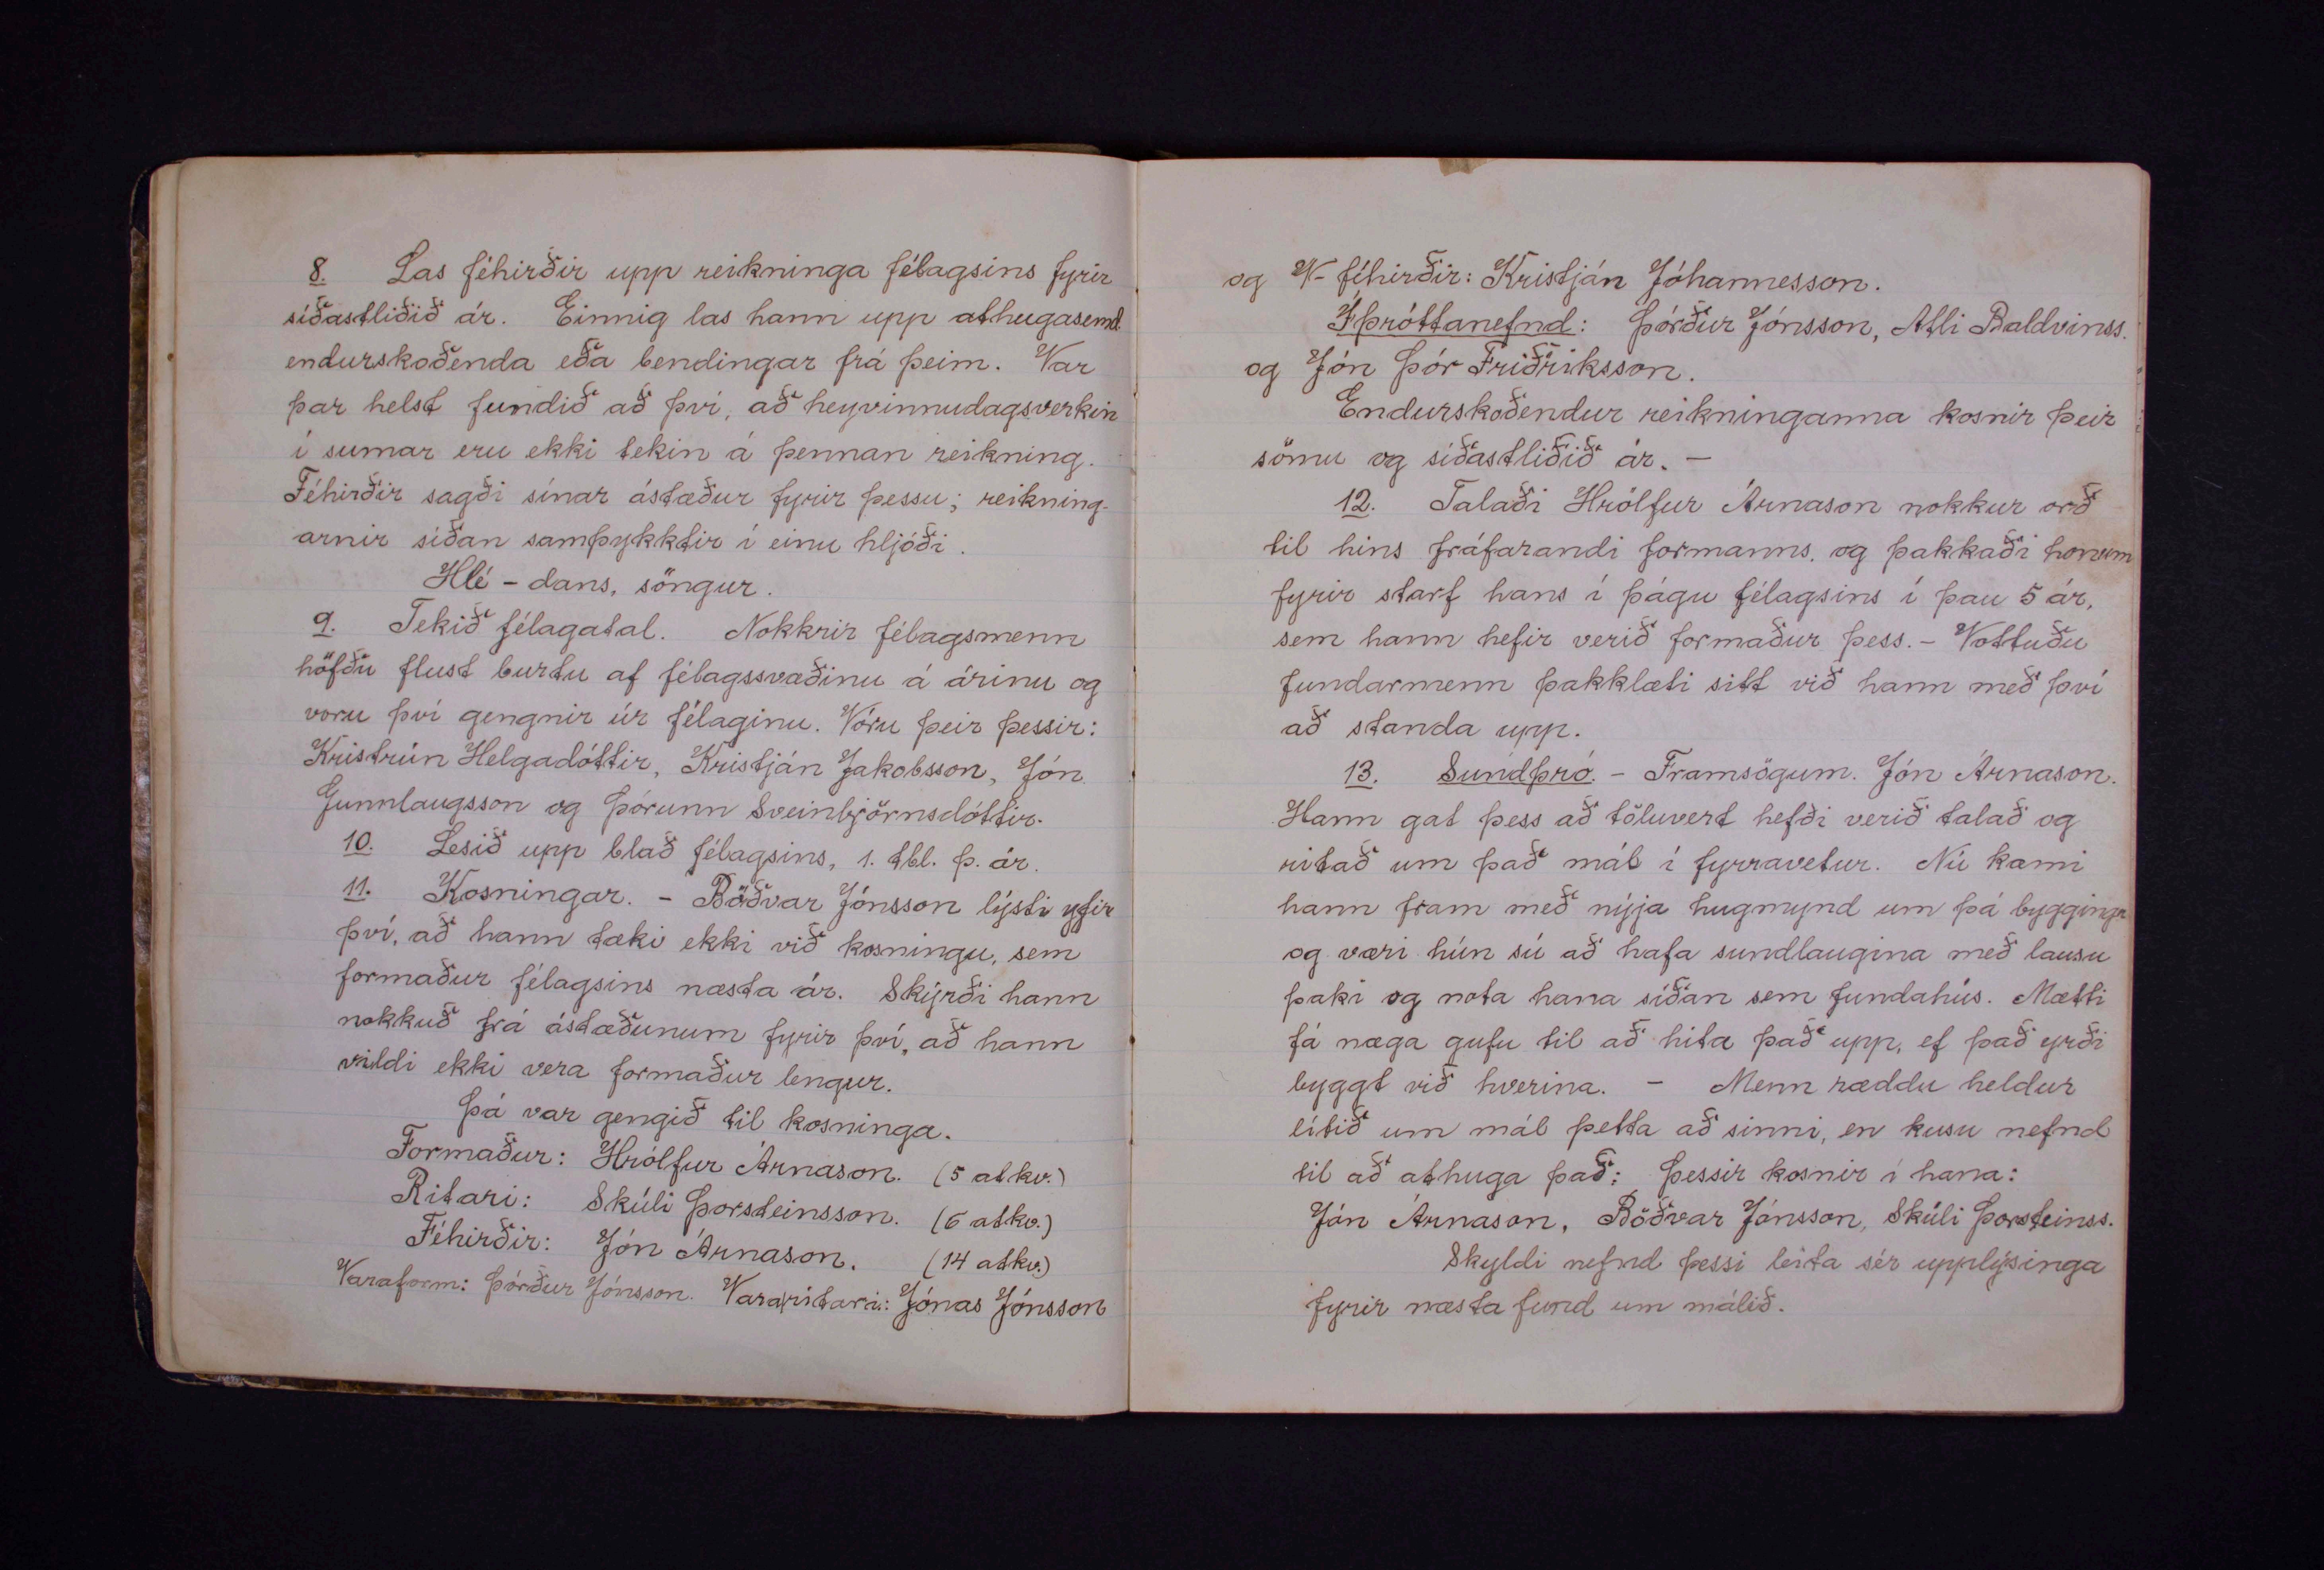 8. Las féhirðir upp reikninga félagsins fyrir
síðastliðið ár. Einnig las hann upp athugasemd
endurskoðenda eða bendingar frá þeim. Var
þar helst fundið að því, að heyvinnudagsverkin
í sumar eru ekki tekin á þennan reikning.
Féhirðir sagði sínar ástæður fyrir þessu; reikning-
arnir síðan samþykktir í einu hljóði.
Hlé - dans, söngur.
9. Tekið félagatal. Nokkrir félagsmenn
höfðu flust burtu af félagssvæðinu á árinu og
voru því gengnir úr félaginu. Vóru þeir þessir:
Kristrún Helgadóttir, Kristján Jakobsson, Jón
Gunnlaugsson og Þórunn Sveinbjörnsdóttir.
10. Lesið upp blað félagsins, 1. tbl. þ. ár.
11. Kosningar. - Böðvar Jónsson lýsti yfir
því, að hann tæki ekki við kosningu, sem
formaður félagsins næsta ár. Skýrði hann
nokkuð frá ástæðunum fyrir því, að hann
vildi ekki vera formaður lengur.
Þá var gengið til kosninga.
Formaður: Hrólfur Árnason. (5 atkv.)
Ritari: Skúli Þorsteinsson. (6 atkv.)
Féhirðir: Jón Árnason. (14 atkv.)
Varaform: Þórður Jónsson. Vararitari: Jónas Jónsson
og V- féhirðir: Kristján Jóhannesson.
Íþróttanefnd: Þórður Jónsson, Atli Baldvinss.
og Jón Þór Friðriksson.
Endurskoðendur reikninganna kosnir þeir
sömu og síðastliðið ár. -
12. Talaði Hrólfur Árnason nokkur orð
til hins fráfarandi formanns, og þakkaði honum
fyrir starf hans í þágu félagsins í þau 5 ár,
sem hann hefir verið formaður þess. - Vottuðu
fundarmenn þakklæti sitt við hann með því
að standa upp.
13. Sundþró. - Framsögum. Jón Árnason.
Hann gat þess að töluvert hefði verið talað og
ritað um það mál í fyrravetur. Nú kæmi
hann fram með nýja hugmynd um þá byggingu
og væri hún sú að hafa sundlaugina með lausu
þaki og nota hana síðan sem fundahús. Mætti
fá næga gufu til að hita það upp, ef það yrði
byggt við hverina. - Menn ræddu heldur
lítið um mál þetta að sinni, en kusu nefnd
til að athuga það: Þessir kosnir í hana:
Jón Árnason, Böðvar Jónsson, Skúli Þorsteinss.
Skyldi nefnd þessi leita sér upplýsinga
fyrir næsta fund um málið.